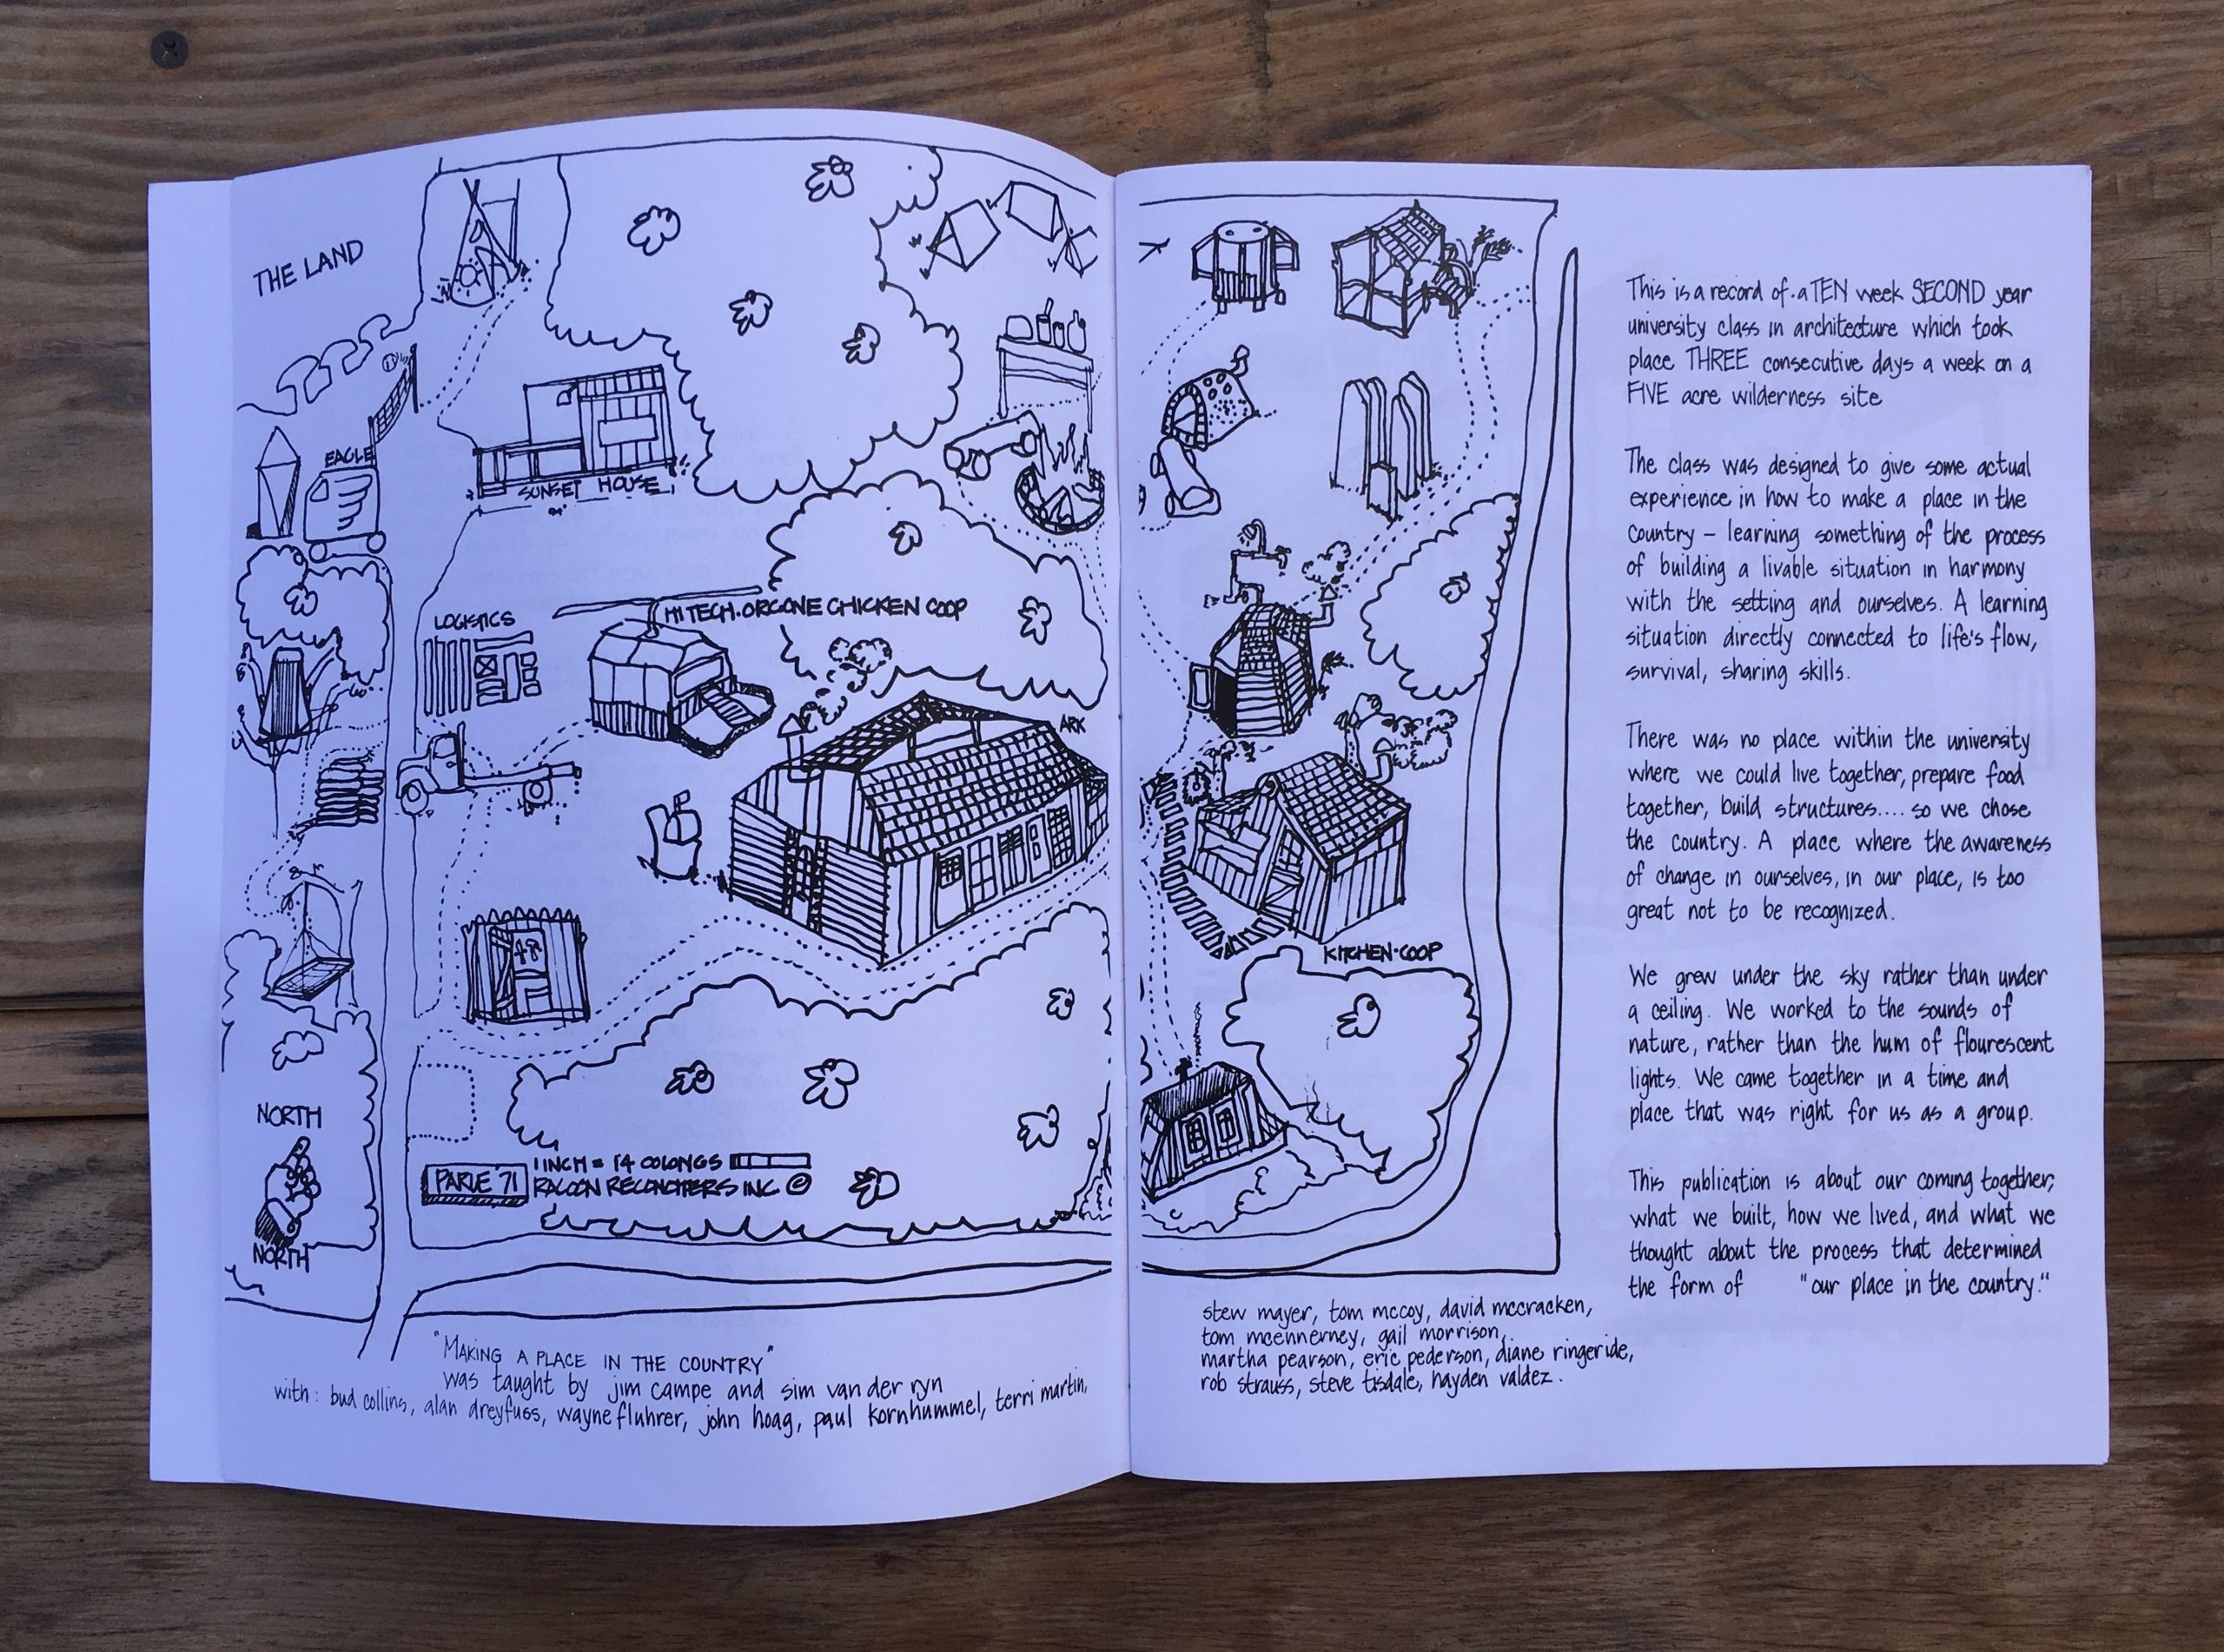 THE LAND
EAGLE
SUNSET HOUSE
LOGISTICS
HI TECH·ORGONE CHICKEN COOP
ARK
NORTH
NORTH
PARLE '71
1 INCH = 14 COLONGS
RACOON RECONOITERS INC. ©
"MAKING A PLACE IN THE COUNTRY"
was taught by jim campe and sim van der ryn
with: bud collins, alan dreyfuss, wayne fluhrer, john hoag, paul kornhummel, terri martin,
KITCHEN·COOP
stew mayer, tom mccoy, david mccracken,
tom mcennerney, gail morrison,
martha pearson, eric pederson, diane ringeride,
rob strauss, steve tisdale, hayden valdez.
This is a record of a TEN week SECOND year
university class in architecture which took
place THREE consecutive days a week on a
FIVE acre wilderness site
The class was designed to give some actual
experience in how to make a place in the
country – learning something of the process
of building a livable situation in harmony
with the setting and ourselves. A learning
situation directly connected to life's flow,
survival, sharing skills.
There was no place within the university
where we could live together, prepare food
together, build structures.... so we chose
the country. A place where the awareness
of change in ourselves, in our place, is too
great not to be recognized.
We grew under the sky rather than under
a ceiling. We worked to the sounds of
nature, rather than the hum of flourescent
lights. We came together in a time and
place that was right for us as a group.
This publication is about our coming together,
what we built, how we lived, and what we
thought about the process that determined
the form of "our place in the country."